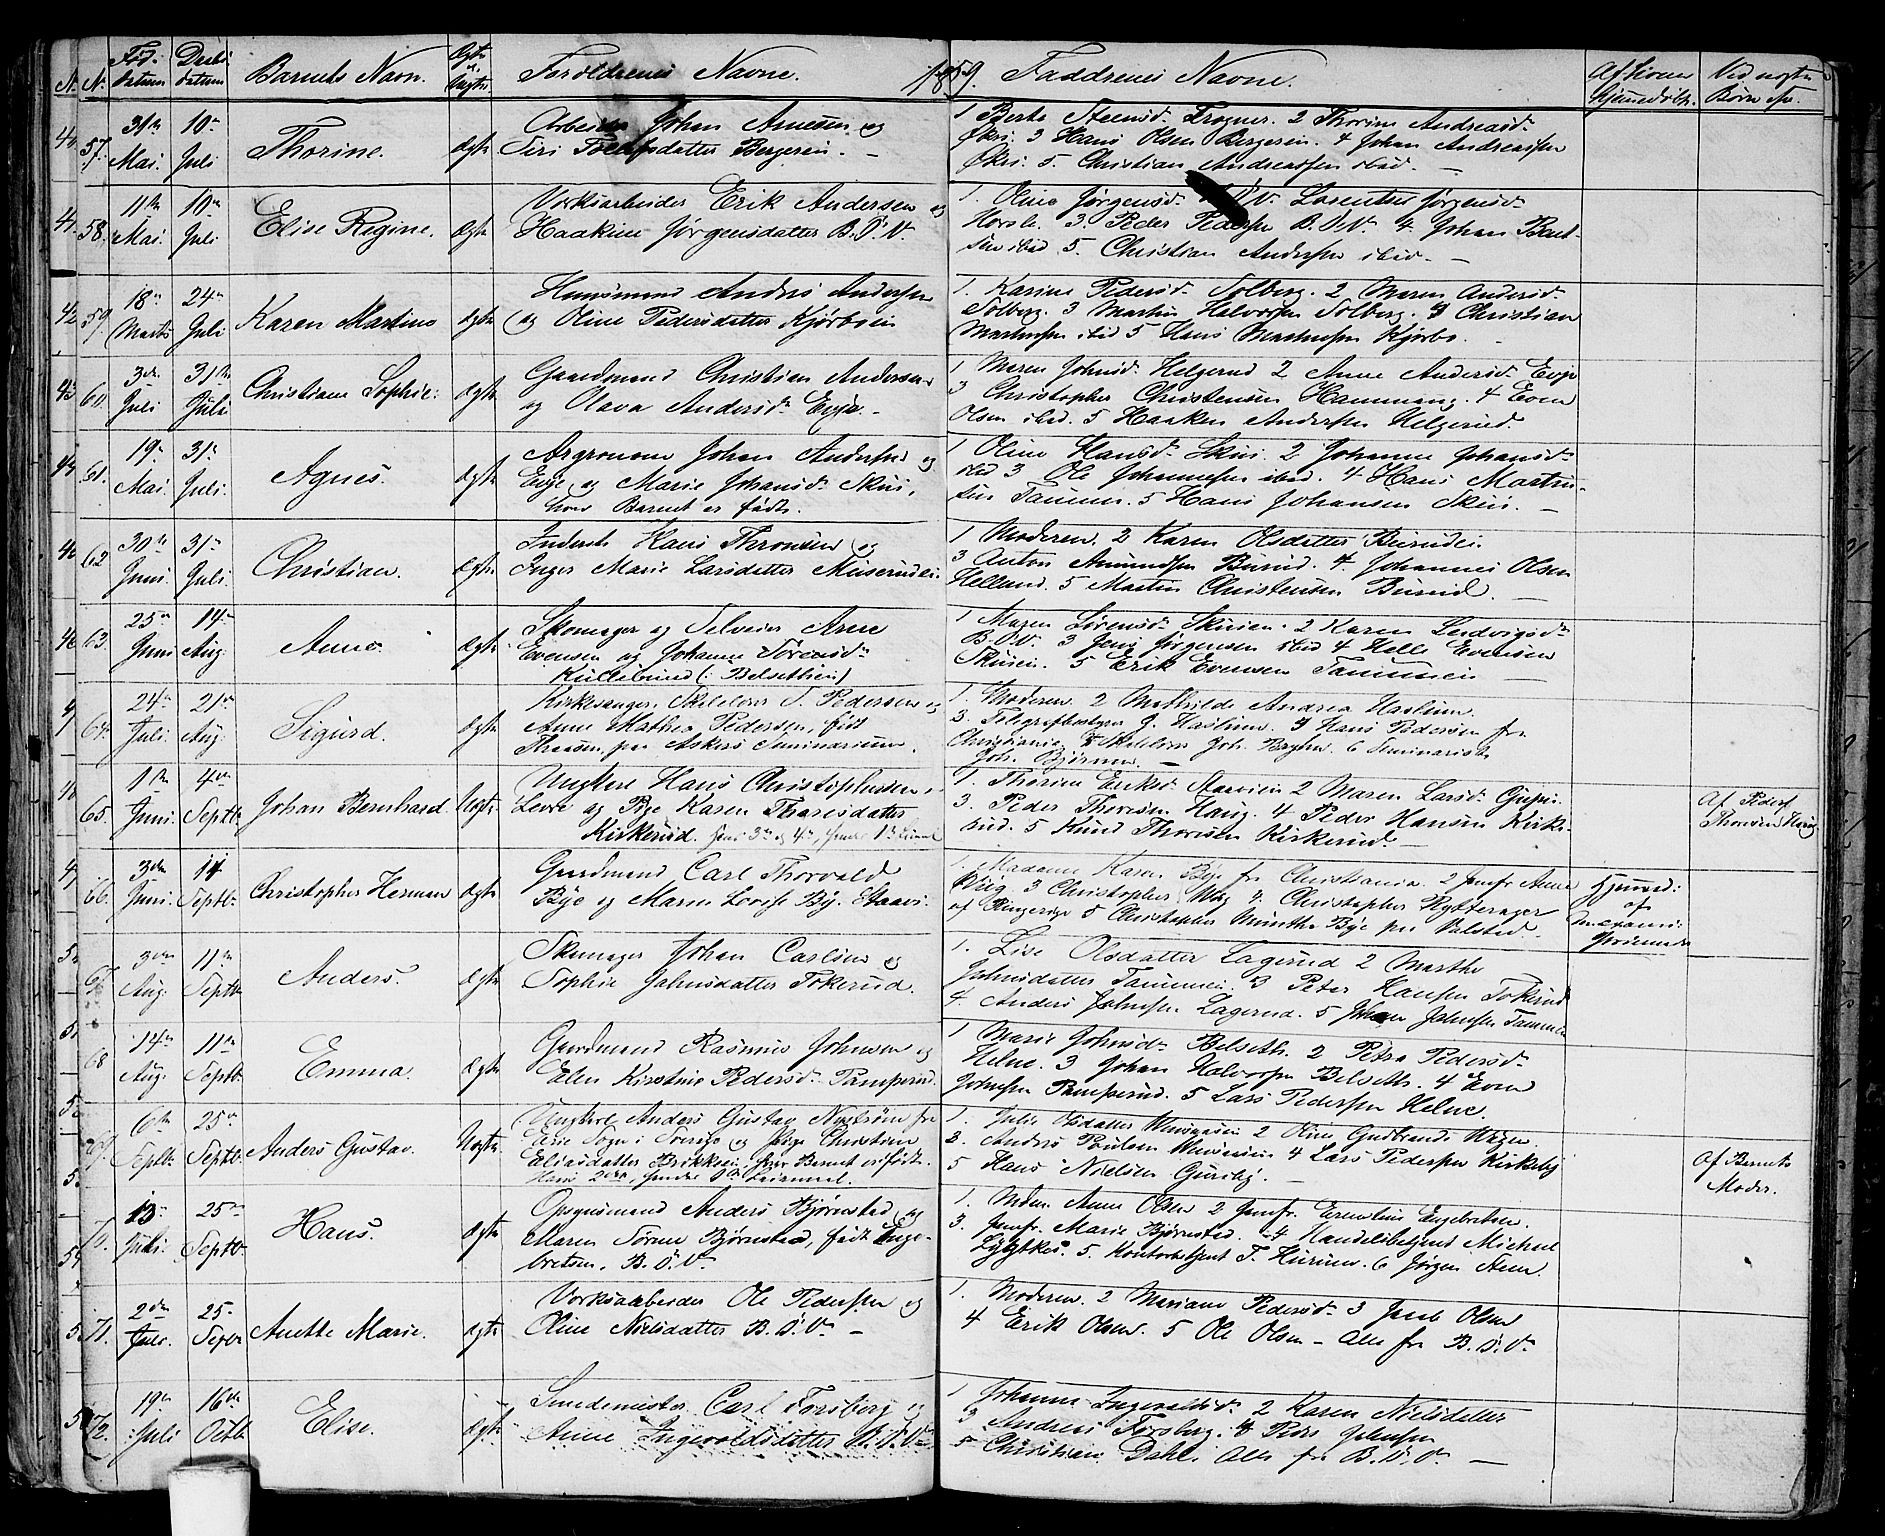 N. N. Fød. datum Døbs datum Barnets Navn. Ægte o. Uægte Forældrenes Navne. 1859. Faddrenes Navne. Af hvem hjemmedøbt. Ved uægte Børn Ar.
57. Mai. 10 Juli Thorine. Ægte Arbeider Johan Arnesen og
Siri Bergerein. –
1 Berte Steensd. Frogner. 2 Thorine Andreasd.
Økri 3 Hans Olsen Bergerein. 4 Johan Andreassen
Økri. 5 Christian Andreassen ibid. –
58. 11te Mai. 10de Juli Elise Regine. Ægte Værksarbeider Erik Andersen og
Haakine Jørgensdatter B.J.V.
1. Oline Jørgensd. Laurentse Jørgensd.
Horsle. 3. Peder Pedersen B.J.V. 4. Johan Bent-
sen ibid 5 Christian Andersen ibid. –
59. 18 Marts 24 Juli Karen Martine Ægte Huusmand Anders Andersen
og Oline Pedersdatter Kjørboein
1. Karine Pedersd. Solberg. 2 Maren Andersd.
Solberg. 3 Martin Halvorsen Solberg. 4 Christian
Martinsen ibid 5 Hans Martinsen Kjørbo.
60. 3de Juli 31te Juli Christiane Sophie. Ægte Gaardmand Christian Andersen
og Olava Andersd. Evje. –
1 Maren Johnsd. Helgerud 2 Anne Andersd. Evje
3 Christopher Christensen Hammang. 4 Even
Olsen ibid. 5 Haaken Andersen Helgerud.
61. 19 Mai. 31 Juli. Agnes. Ægte Argronom Johan Andersen og
Evje, og Marie Johansd. Skui,
hvor Barnet er født.
1 Oline Hansd. Skui. 2 Johanne Johansd.
ibid 3 Ole Johannessen ibid. 4 Hans Martin-
sen Tanum. 5 Hans Johansen Skui. –
62 30te Juni. 31 Juli. Christian. Ægte Inderst Hans Thronsen og
Inger Marie Larsdatter Muserudei.
1 Moderen. 2 Karen Olsdatter Burudei.
3 Anton Amundsen Burud. 4. Johannes Olsen
Helland. 5 Martin Christensen Burud. –
63. 25 Juni 14 Aug. Anne. Ægte Skomager og Selveier Arne
Evensen og Johanne Sørensd.
Kullebund (: Belsetheie)
1 Maren Sørensd. Skuien. 2 Karen Ludvigsd.
B.J.V. 3 Jens Jørgensen ibid 4 Helle Evensen
Skuien. 5 Erik Evensen Tanumein –
64. 24 Juli. 21 Aug. Sigurd. Ægte Kirkesanger, Skolelærer S. Pedersen og
Anne Mathea Pedersen, født
paa Askers Seminarium.
1. Moderen. 2 Mathilde Andrea Haslum.
3. Telegrafbestyrer J. Haslum. 4 Hans Pedersen fra
Christiania. 5 Skolelærer Joh. 6 Seminarist
Joh. Bjørnum. –
65. 1te Juni. 4de Septb. Johan Bernhard. Uægte Ungkarl Hans Christophersen
Levre og Pige Karen Thoresdatter
Kirkerud. Hans 3de og 4de, hendes 1ste Leierm.
1. Thorine Eriksd. Staveien 2 Maren Larsd.
3. Peder Thoresen Haug. 4 Peder Hansen Kirke-
rud. 5 Knud Thoresen Kirkerud –
Af Peder
Thoresen Haug
66. 3de Juni. 11 Septb. Christopher Herman Ægte Gaardmand Carl Thorvald
Bye og Maren Lovise By. Staavi.
1. Madame Karen Bye fra Christiania. 2 Jomfr. Anne
3 Christopher 4. Christopher Rytterager
af Ringerige 5 Christopher Munthe Bye paa Valstad.
Hjemmed:
af
67. 3de Aug. 11te Septb. Anders. Ægte Skomager Johan Carlsen og
Sophie Johnsdatter Tokerud.
1. Lise Olsdatter Lagerud 2 Marthe
Johnsdatter Tanumei. 3 Peter Hansen Tokerud
4. Anders Johnsen Lagerud. 5 Johan Johnsen Tanum
68 14de Aug. 11te Septb. Emma. Ægte Gaardmand Rasmus Johnsen og
Elen Kirstine Pedersd. Pamperud.
1 Marie Johnsd. Belseth. 2 Petra Pedersd.
Helne. 3 Johan Halvorsen Belseth. 4 Even
Johnsen Pamperud. 5 Lars Pedersen Helne.
69. 6te Septb. 25de Septb. Anders Gustav. Uægte Ungkarl Anders Gustav Nystrøm fra
Sogn i Sverige og Pige Christine
Eliasdatter hvor Barnet er født.
Hans 2det, hendes Leiermaal.
1. Julie Olsdatter 2 Oline Gudbrands
3. Anders Poulsen 4 Lars Pedersen Kirkeby
5 Hans Nielsen Gjøriby. –
Af Barnets
Moder.
70. 13 Juli. 25de Septb. Hans. Ægte Anders Bjørnstad og
Maren Sørine Bjørnstad, født Inge-
bretsen. B.J.V.
1. Anne Olsen 2 Jomfr. Engebretsen.
3. Jomfr. Marie Bjørnstad. 4 Handelsbetjent Michael
Lytzkes. 5. Kontorbetjent T. Hurum. 6 Jørgen
71. 2den Juli. 25. Septbr Anette Marie. Ægte Værksarbeider Ole Pedersen og
Oline Nielsdatter B.J.V. –
1. Moderen. 2 Mariane Pedersd. 3 Jacob Olsen
4 Erik Olsen. 5 Ole Olsen – Alle fra B.J.V.
72. 19de Juli 16de Octb. Elise. Ægte Smedemester Carl Forsberg og
Anne Ingevoldsdatter B.J.V.
1 Johanne Ingevoldsd. 2 Karen Nielsdatter
3 Andreas Forsberg. 4 Peder Johnsen
5 Christian Dahl. Alle fra B.J.V. –